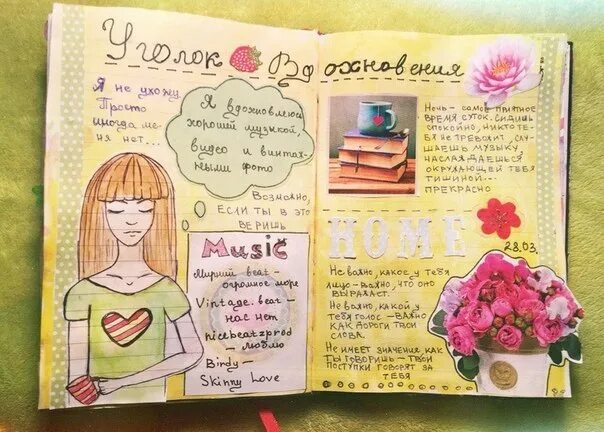 Уголок Вдохновения
Я не ухожу.
Просто
иногда ме-
ня нет...
Я вдохновляюсь
хорошей музыкой,
видео и винтаж-
ными фото
Возможно,
если ты в это
веришь
Music
Мирий beat -
огромное море
Vintage. beat -
нас нет
nicebeatzprod
- люблю
Birdy -
Skinny Love
Ночь - самое приятное
время суток. Сидишь
спокойно, никто те-
бя не тревожит, слу-
шаешь музыку,
наслаждаешься
окружающей тебя
тишиной...
Прекрасно
HOME
28.03.
Не важно, какое у тебя
лицо - важно, что оно
выражает.
Не важно, какой у
тебя голос - важно
как дороги твои
слова.
Не имеет значения как
ты говоришь - твои
поступки говорят за
тебя